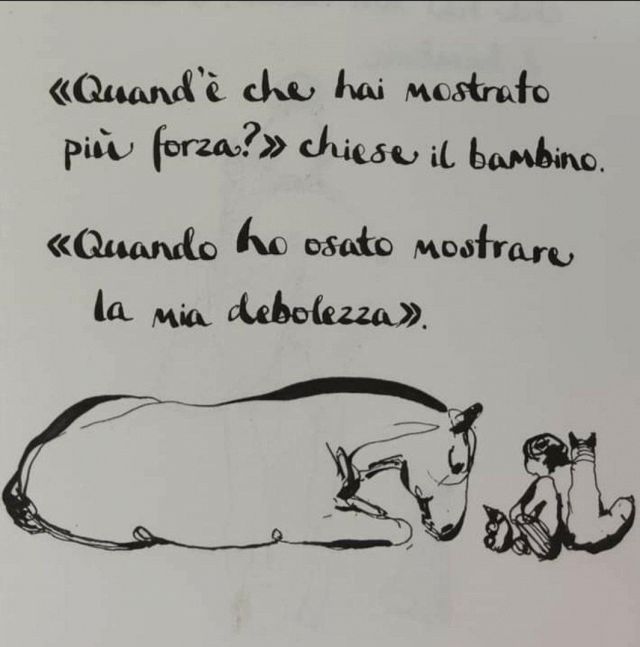 «Quand'è che hai mostrato
più forza?» chiese il bambino.
«Quando ho osato mostrare
la mia debolezza».